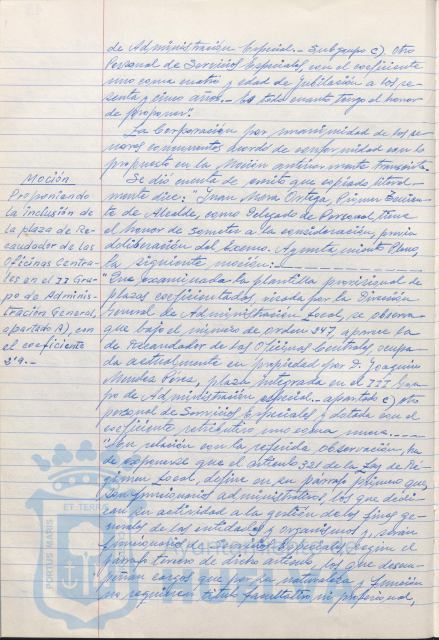 de Administración Especial.- Subgrupo C) Otro
Personal de Servicios Especiales, con el coeficiente
uno coma cuatro y edad de jubilación a los se-
senta y cinco años.- Es todo cuanto tengo el honor
de proponer".
La Corporación por unanimidad de los se-
ñores concurrentes acordó de conformidad con lo
propuesto en la Moción anteriormente transcrita.
Moción
Proponiendo
la inclusión de
la plaza de Re-
caudador de las
Oficinas Centra-
les en el II Gru-
po de Adminis-
tración General,
apartado A), con
el coeficiente
2'9.-
Se dió cuenta de escrito que copiado literal-
mente dice: "Juan Mora Ortega, Primer Tenien-
te de Alcalde, como Delegado de Personal, tiene
el honor de someter a la consideración, previa
deliberación del Excmo. Ayuntamiento Pleno,
la siguiente moción:
"Que examinada la plantilla provisional de
plazas coeficientadas, visada por la Dirección
General de Administración Local, se observa
que bajo el número de orden 247, aparece la
de Recaudador de las Oficinas Centrales ocupa-
da actualmente en propiedad por D. Joaquín
Méndez Pérez, plaza integrada en el III Gru-
po de Administración especial.- apartado C) otro
personal de Servicios Especiales y dotada con el
coeficiente retributivo uno coma nueve.
"En relación con la referida observación, ha
de exponerse que el artículo 321 de la Ley de Ré-
gimen Local, define en su párrafo primero que
son funcionarios administrativos los que dedi-
can su actividad a la gestión de los fines ge-
nerales de las entidades y organismos y, serán
funcionarios de servicios especiales según el
párrafo tercero de dicho artículo, los que desem-
peñan cargos que por su naturaleza y función
no requieren título facultativo ni profesional,
PORTUS MARIS
ET TERR